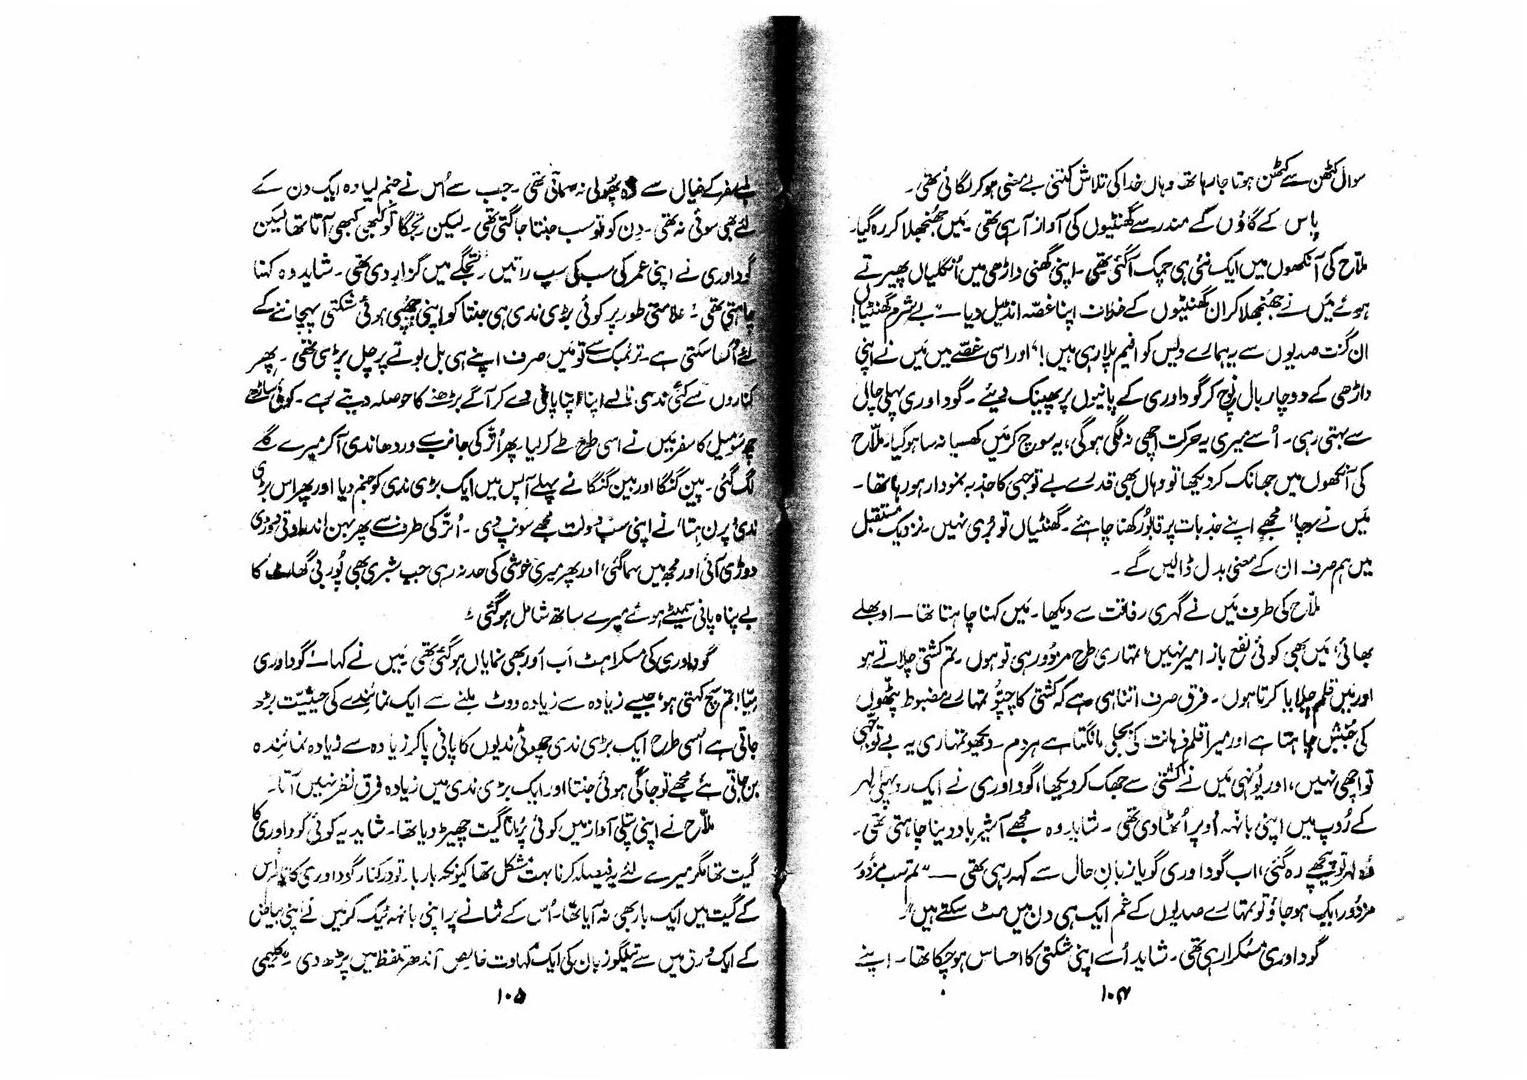 سوال کٹھن سے کٹھن ہوتا جا رہا تھا وہاں خدا کی تلاش کتنی بے معنی ہو کر رہ گئی تھی۔
پاس کے گاؤں کے مندر سے گھنٹیوں کی آواز آ رہی تھی۔ میں جھنجھلا کر رہ گیا۔
ملاح کی آنکھوں میں ایک نئی ہی چمک آ گئی تھی۔ اپنی گھنی داڑھی میں انگلیاں پھیرتے
ہوئے میں نے جھنجھلا کر ان گھنٹیوں کے خلاف اپنا غصہ انڈیل دیا — "بے شرم گھنٹیاں!
ان گنت صدیوں سے یہ ہمارے دیس کو افیم پلا رہی ہیں!" اور اسی غصے میں میں نے اپنی
داڑھی کے دو چار بال نوچ کر گوداوری کے پانیوں پر پھینک دیئے۔ گوداوری پہلی چال
سے بہتی رہی۔ اُسے میری یہ حرکت اچھی نہ لگی ہو گی، یہ سوچ کر میں کھسیانہ سا ہو گیا۔ ملاح
کی آنکھوں میں جھانک کر دیکھا تو وہاں بھی قدرے بے توجہی کا جذبہ نمودار ہو رہا تھا۔
میں نے سوچا، مجھے اپنے جذبات پر قابو رکھنا چاہئے۔ گھنٹیاں تو بُری نہیں۔ نزدیک مستقبل
میں ہم صرف ان کے معنی بدل ڈالیں گے۔
ملاح کی طرف میں نے گہری رفاقت سے دیکھا۔ میں کہنا چاہتا تھا — او بھلے
بھائی، میں بھی کوئی نفع باز امیر نہیں، تمہاری طرح مزدور ہی تو ہوں۔ تم کشتی چلاتے ہو
اور میں قلم چلایا کرتا ہوں۔ فرق صرف اتنا ہی ہے کہ کشتی کا چپّو تمہارے مضبوط پٹھوں
کی جنبش چاہتا ہے اور میرا قلم ذہانت کی بجلی مانگتا ہے ہر دم — دیکھو تمہاری یہ بے توجہی
تو اچھی نہیں، اور یونہی میں نے کشتی سے جھک کر دیکھا، گوداوری نے ایک روپہلی لہر
کے رُوپ میں اپنی بانہہ اُوپر اُٹھا دی تھی۔ شاید وہ مجھے آشیرباد دینا چاہتی تھی۔
وہ لہر تو پیچھے رہ گئی، اب گوداوری گویا زبانِ حال سے کہہ رہی تھی — "تم سب مزدور
مزدور ایک ہو جاؤ تو تمہارے صدیوں کے غم ایک ہی دن میں مٹ سکتے ہیں"
گوداوری مسکرا رہی تھی۔ شاید اُسے اپنی شکتی کا احساس ہو چکا تھا۔ اپنے
۱۰۴
لمبے سفر کے خیال سے وہ پھولی نہ سماتی تھی۔ جب سے اُس نے جنم لیا وہ ایک دن کے
لئے بھی سوئی نہ تھی۔ دِن کو تو سب جنتا جاگتی تھی۔ لیکن رتجگا تو کبھی کبھی آتا تھا لیکن
گوداوری نے اپنی عمر کی سب کی سب راتیں رتجگے میں گزار دی تھی۔ شاید وہ کہنا
چاہتی تھی۔ علامتی طور پر کوئی بڑی ندی ہی جنتا کو اپنی چھپی ہوئی شکتی پہچاننے کے
لئے اُکسا سکتی ہے۔ ترنبک سے تو میں صرف اپنے ہی بل بوتے پر چل پڑی تھی۔ پھر
کناروں سے کئی ندی نالے اپنا اپنا پانی دے کر آگے بڑھنے کا حوصلہ دیتے رہے۔ کوئی ساڑھے
چھ سو میل کا سفر میں نے اسی طرح طے کر لیا۔ پھر اُتر کی جانب سے وردھا ندی آ کر میرے گلے
لگ گئی۔ پین گنگا اور بین گنگا نے پہلے آپس میں ایک بڑی ندی کو جنم دیا اور پھر اس بڑی
ندی پرن ہتا نے اپنی سب دولت مجھے سونپ دی۔ اُتر کی طرف سے پھر بہن اندراوتی دوڑی
دوڑی آئی اور مجھ میں سما گئی، اور پھر میری خوشی کی حد نہ رہی جب شبری بھی پُوربی گھاٹ کا
بے پناہ پانی سمیٹے ہوئے میرے ساتھ شامل ہو گئی"
گوداوری کی مسکراہٹ اب اور بھی نمایاں ہو گئی تھی۔ میں نے کہا — "گوداوری
میّا! تم سچ کہتی ہو، جیسے زیادہ سے زیادہ ووٹ ملنے سے ایک نمائندے کی حیثیت بڑھ
جاتی ہے اسی طرح ایک بڑی ندی چھوٹی ندیوں کا پانی پا کر زیادہ سے زیادہ نمائندہ
بن جاتی ہے مجھے تو جاگی ہوئی جنتا اور ایک بڑی ندی میں زیادہ فرق نظر نہیں آتا۔
ملاح نے اپنی پتلی آواز میں کوئی پُرانا گیت چھیڑ دیا تھا۔ شاید یہ کوئی گوداوری کا
گیت تھا مگر میرے لئے یہ فیصلہ کرنا بہت مشکل تھا کیونکہ بار بار تو درکنار گوداوری کا نام اس
کے گیت میں ایک بار بھی نہ آیا تھا۔ اُس کے شانے پر اپنی بانہہ ٹیک کر میں نے اپنی بیاض
کے ایک ورق میں سے تیلگو زبان کی ایک کہاوت خالص آندھر تلفظ میں پڑھ دی۔
۱۰۵